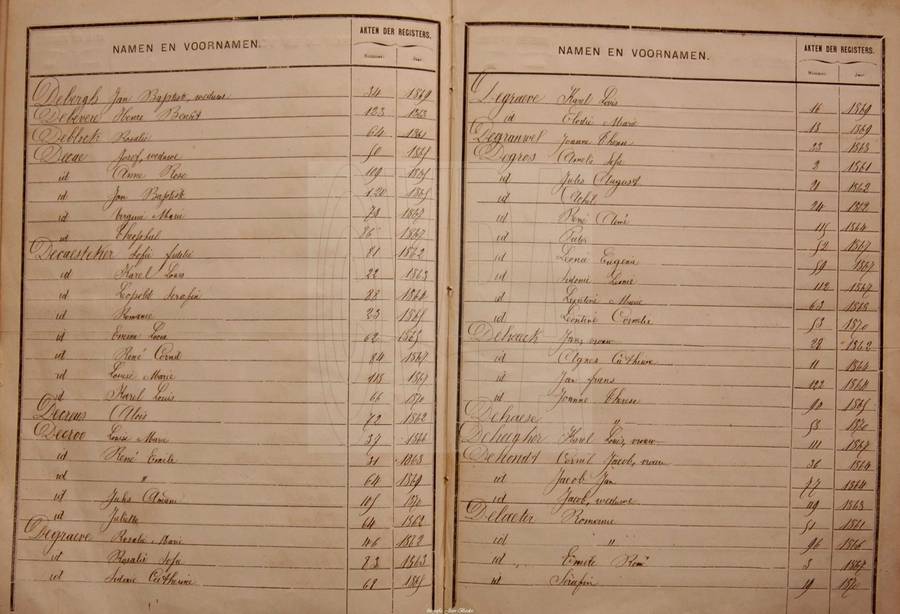 NAMEN EN VOORNAMEN.
AKTEN DER REGISTERS.
Nummer. Jaar.
Debergh Jan Baptist, weduwe 34 1869
Debevere Henri Benoit 123 1863
Deblock Rosalie 64 1861
Decae Josef, weduwe 50 1865
id Anne Rose 109 1865
id Jan Baptist 120 1865
id Marie 78 1867
id Theophiel 86 1867
Decaesteker Sofie fidelie 81 1862
id Karel Louis 22 1863
id Leopold Serafin 88 1864
id Romanie 23 1865
id Emma 62 1865
id René Cornil 84 1867
id Louise Marie 118 1867
id Karel Louis 66 1870
Decraus Alois 72 1862
Decroo Louise Marie 39 1866
id René Emile 31 1868
id " 64 1869
id Jules 105 1870
id Juliette 64 1862
Degraeve Rosalie Marie 46 1862
id Rosalie Sofie 83 1863
id Sidonie Catherine 68 1865
NAMEN EN VOORNAMEN.
AKTEN DER REGISTERS.
Nummer. Jaar.
Degraeve Karel Louis 16 1869
id Elodie Marie 18 1869
Joanne 23 1863
Degros Amelie Sofie 2 1861
id Jules August 21 1862
id Achiel 24
id René Aimé 115 1864
id Pieter 52 1867
id Leonie Eugenia 59 1867
id Sidonie 112 1867
id Leontine Marie 62 1868
id Leontine Cornelie 53 1870
Jan, vrouw 28 1862
id Agnes Catherine 11 1864
id Jan frans 122 1864
id Joanne Therese 90 1865
Dehaese " 53 1870
Karel Louis, vrouw 111 1867
Dehondt Cornil Jacob, vrouw 36 1864
id Jacob Jan 77 1864
id Jacob, weduwe 119 1863
Delaeter Romanie 51 1861
id " 96 1866
id Emile René 3 1867
id Serafin 19 1870